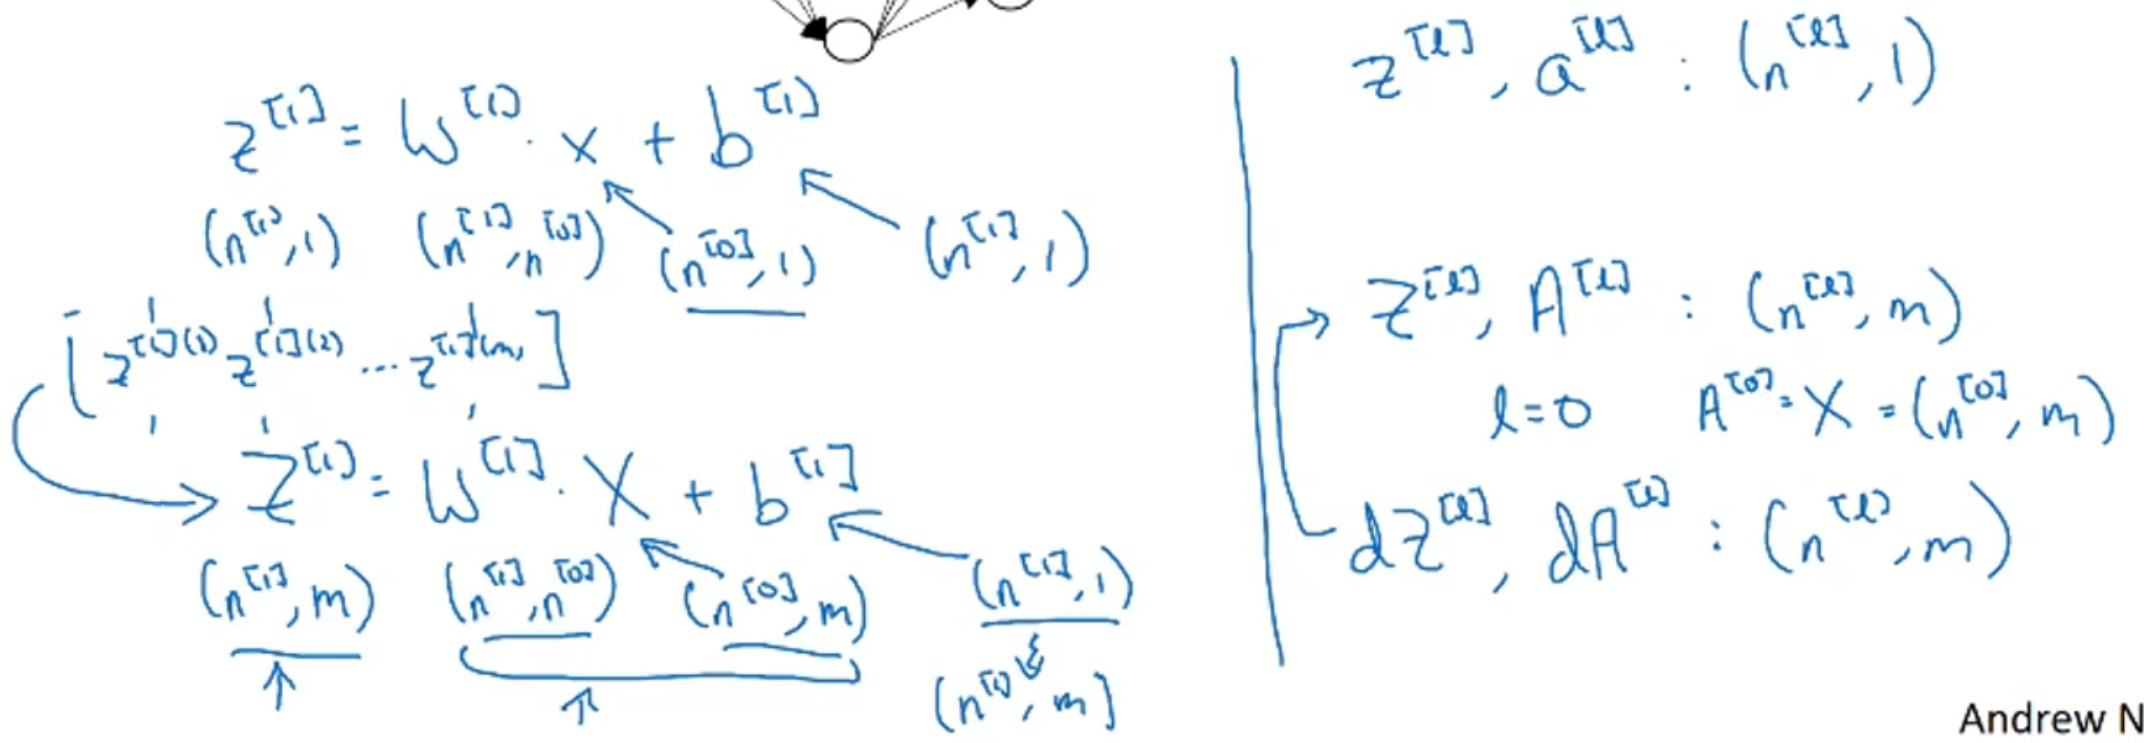 z^[1] = W^[1] · x + b^[1]
(n^[1], 1) (n^[1], n^[0]) (n^[0], 1) (n^[1], 1)
[z^[1](1) z^[1](2) ... z^[1](m)]
Z^[1] = W^[1] · X + b^[1]
(n^[1], m) (n^[1], n^[0]) (n^[0], m) (n^[1], 1)
(n^[1], m]
z^[l], a^[l] : (n^[l], 1)
Z^[l], A^[l] : (n^[l], m)
l=0 A^[0] = X = (n^[0], m)
dZ^[l], dA^[l] : (n^[l], m)
Andrew N